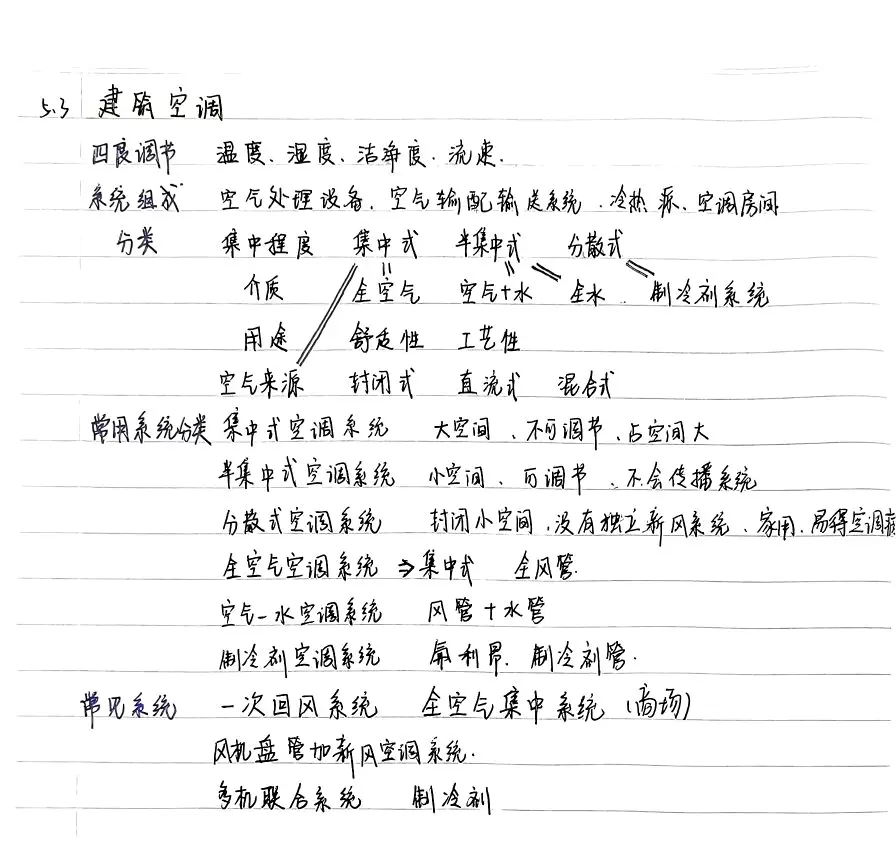 5.3 建筑空调
四度调节 温度、湿度、洁净度、流速.
系统组成 空气处理设备、空气输配输送系统、冷热源、空调房间
分类 集中程度 集中式 半集中式 分散式
介质 全空气 空气+水 全水、制冷剂系统
用途 舒适性 工艺性
空气来源 封闭式 直流式 混合式
常用系统分类 集中式空调系统 大空间、不可调节、占空间大
半集中式空调系统 小空间、可调节、不会传播系统
分散式空调系统 封闭小空间、没有独立新风系统、家用、易得空调病
全空气空调系统 ⇒集中式 全风管.
空气-水空调系统 风管+水管
制冷剂空调系统 氟利昂、制冷剂管.
常见系统 一次回风系统 全空气集中系统(商场)
风机盘管加新风空调系统.
多机联合系统 制冷剂